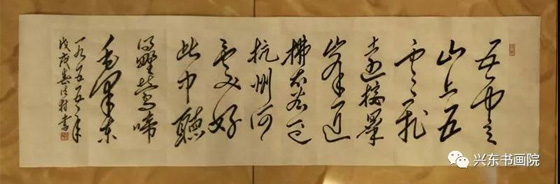 五云
山上五
云飞
远接群
峰近
拂堤若问
杭州何
处好
此中听
得野莺啼
毛泽东
一九五五年
书
兴东书画院